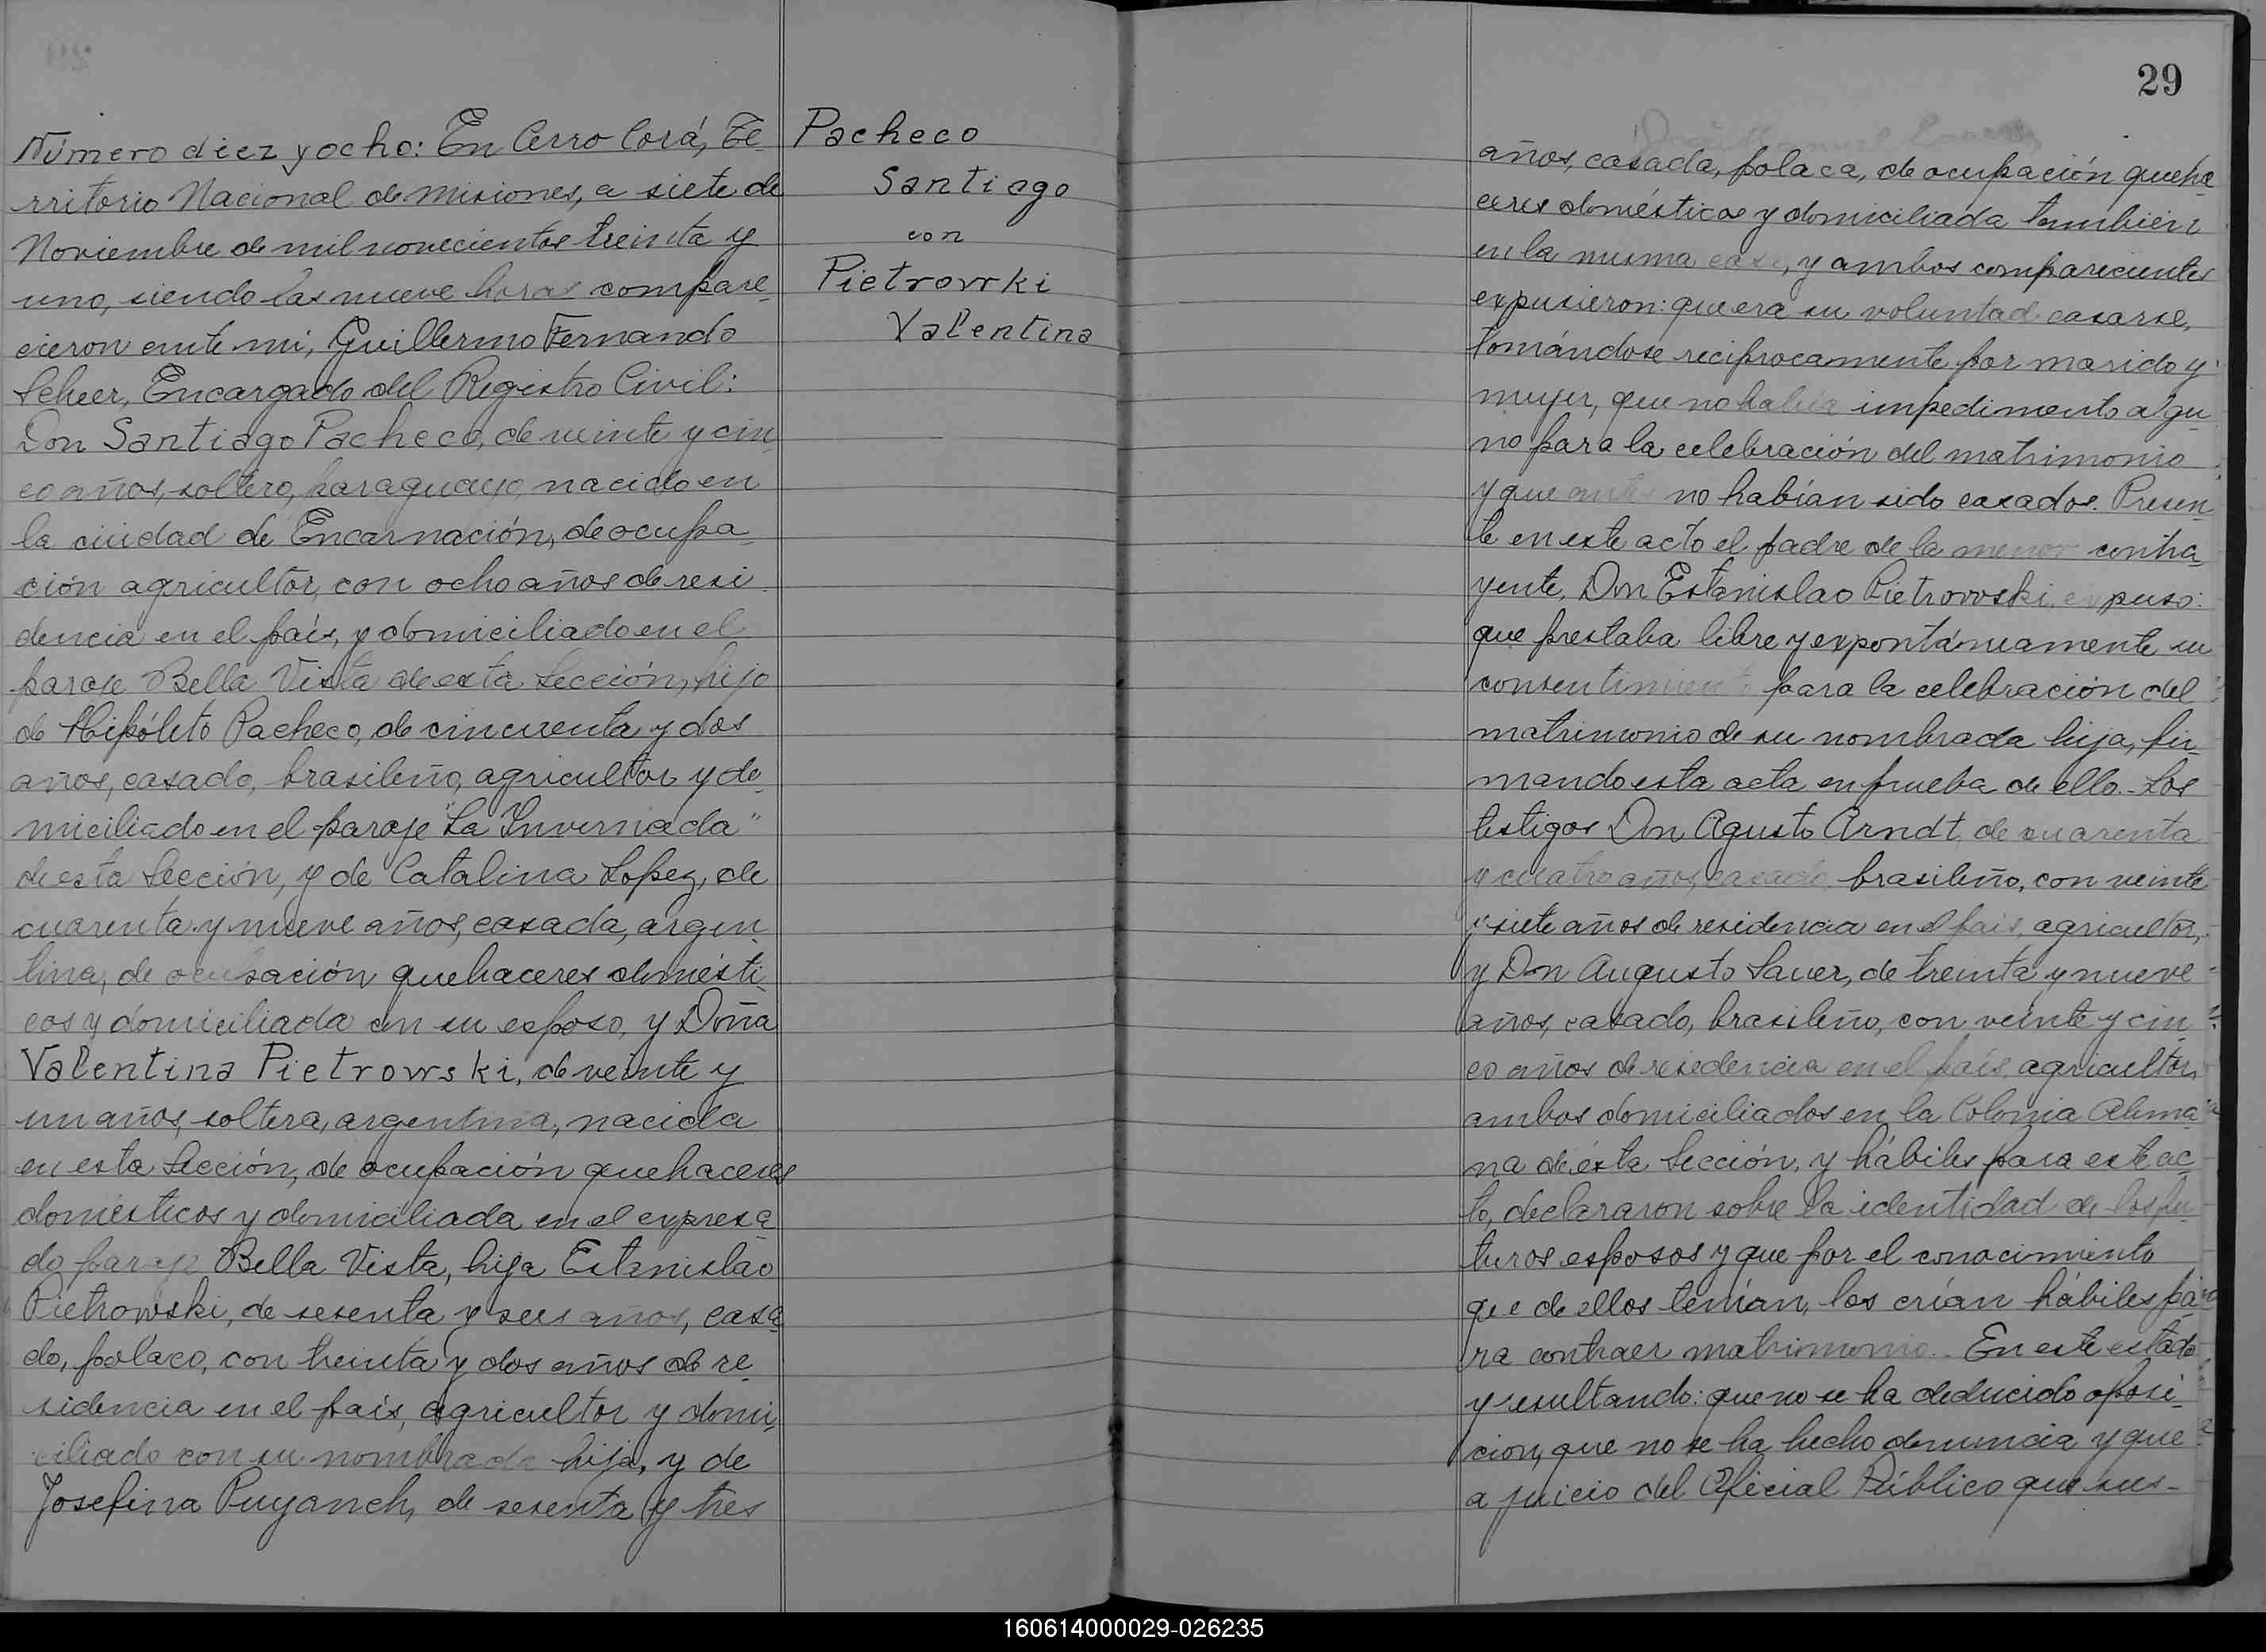 Número diez y ocho: En Cerro Corá, Te-
rritorio Nacional de Misiones, a siete de
Noviembre de mil novecientos treinta y
uno, siendo las nueve horas compare-
cieron ante mi, Guillermo Fernando
Scheer, Encargado del Registro Civil:
Don Santiago Pacheco, de veinte y cin-
co años, soltero, paraguayo, nacido en
la ciudad de Encarnación, de ocupa-
ción agricultor, con ocho años de resi-
dencia en el país, y domiciliado en el
paraje Bella Vista de esta Sección, hijo
de Hipólito Pacheco, de cincuenta y dos
años, casado, brasileño, agricultor y do-
miciliado en el paraje "La Invernada"
de esta Sección, y de Catalina Lopez, de
cuarenta y nueve años, casada, argen-
tina, de ocupación quehaceres domésti-
cos y domiciliada con su esposo, y Doña
Valentina Pietrowski, de veinte y
un años, soltera, argentina, nacida
en esta Sección, de ocupación quehaceres
domésticos y domiciliada en el expresa-
do paraje Bella Vista, hija Estanislao
Pietrowski, de sesenta y seis años, casa-
do, polaco, con treinta y dos años de re-
sidencia en el país, agricultor y domi-
ciliado con su nombrada hija, y de
Josefina Puyanch, de sesenta y tres
Pacheco
Santiago
con
Pietrowski
Valentina
29
años, casada, polaca, de ocupación queha-
ceres domésticos y domiciliada tambien
en la misma casa, y ambos comparecientes
expusieron: que era su voluntad casarse,
tomándose reciprocamente por marido y
mujer, que no había impedimento algu-
no para la celebración del matrimonio
y que antes no habían sido casados. Presen-
te en este acto el padre de la menor contra-
yente, Don Estanislao Pietrowski, expuso:
que prestaba libre y expontáneamente su
consentimiento para la celebración del
matrimonio de su nombrada hija, fir-
mando esta acta en prueba de ello. Los
testigos Don Agusto Arndt, de cuarenta
y cuatro años, casado, brasileño, con veinte
y siete años de residencia en el país, agricultor,
y Don Augusto Sauer, de treinta y nueve
años, casado, brasileño, con veinte y cin-
co años de residencia en el país, agricultor,
ambos domiciliados en la Colonia Alema-
na de ésta Sección, y hábiles para este ac-
to, declararon sobre la identidad de los fu-
turos esposos y que por el conocimiento
que de ellos tenían, los crían hábiles pa-
ra contraer matrimonio. En este estado
y resultando: que no se ha deducido oposi-
cion, que no se ha hecho denuncia y que
a juicio del Oficial Público que sus-
160614000029-026235